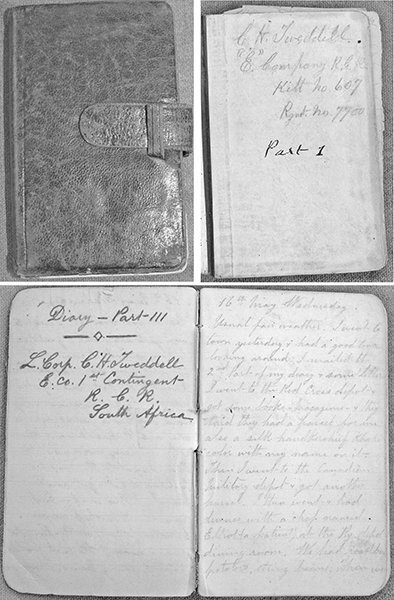 C. H. Tweddell.
"E" Company R.C.R.
Kitt No. 607
Rgmt. No. 7700
Part 1
Diary - Part III
L. Corp. C. H. Tweddell
E. Co. 1st Contingent
R. C. R.
South Africa
16th May Wednesday.
Usual fair weather. I went to
town yesterday & had a good time
looking around. I mailed the
2nd Part of my diary & some
I went to the Red Cross depot &
got some books & magazines & they
said they had a parcel for me
also a silk handkerchief Khaki
color with my name on it.
Then I went to the Canadian
depot & got another
parcel. I then went & had
dinner with a chap named
Elliott a patient, at the Ry.
dining room. We had